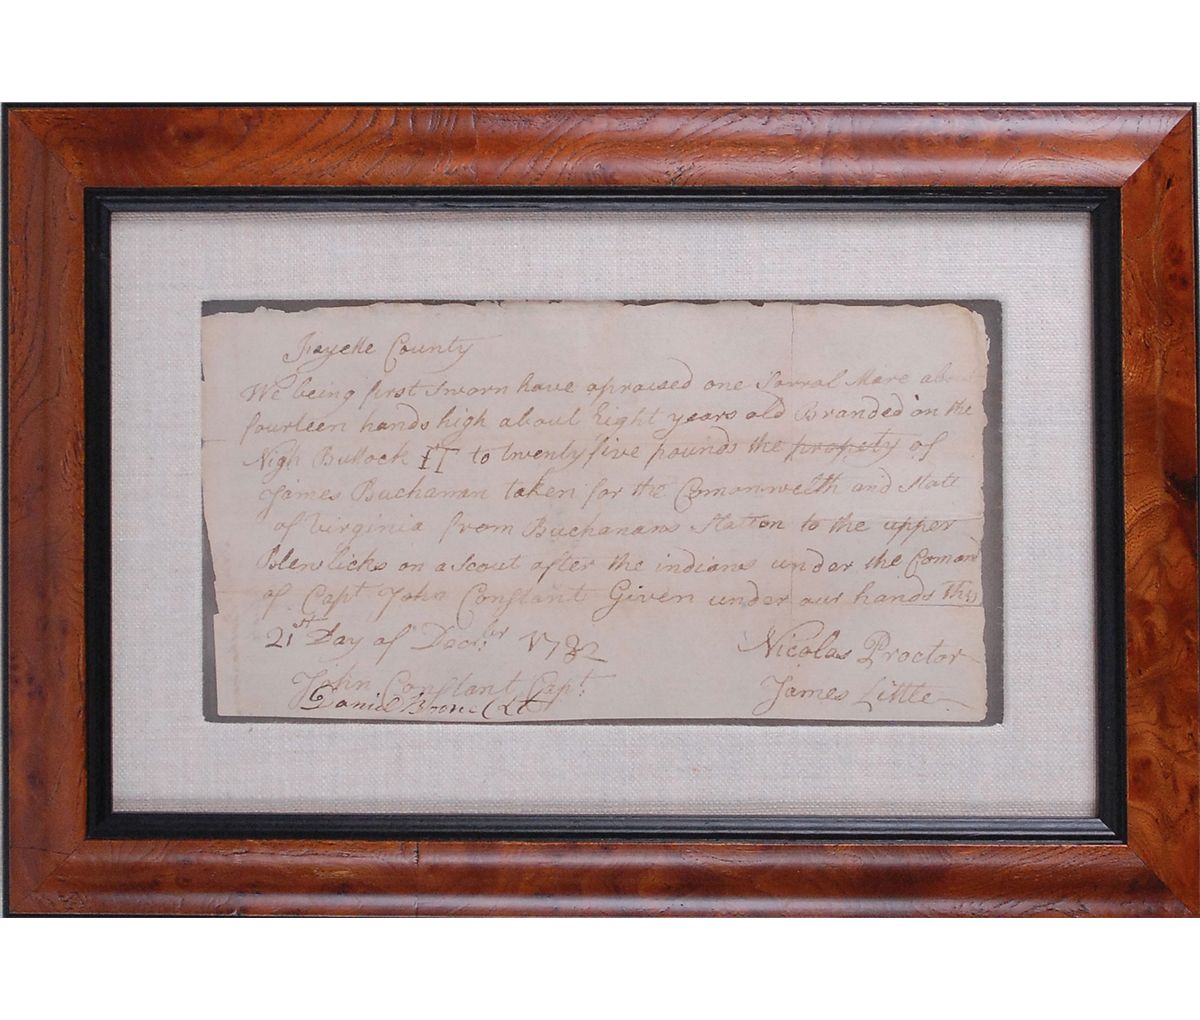 Fayette County
We being first Sworn have apraised one Sorral Mare
fourteen hands high about Eight years old Branded on the
Nigh Buttock IT to twenty five pounds the property of
James Buchannan taken for the Comonwelth and State
of Virginia from Buchanans Station to the upper
Blew licks on a Scout after the indians under the Comand
of Capt John Constant Given under our hands This
21st Day of Decr. 1782
Nicolas Proctor
John Constant Capt.
James Little
Daniel Boone